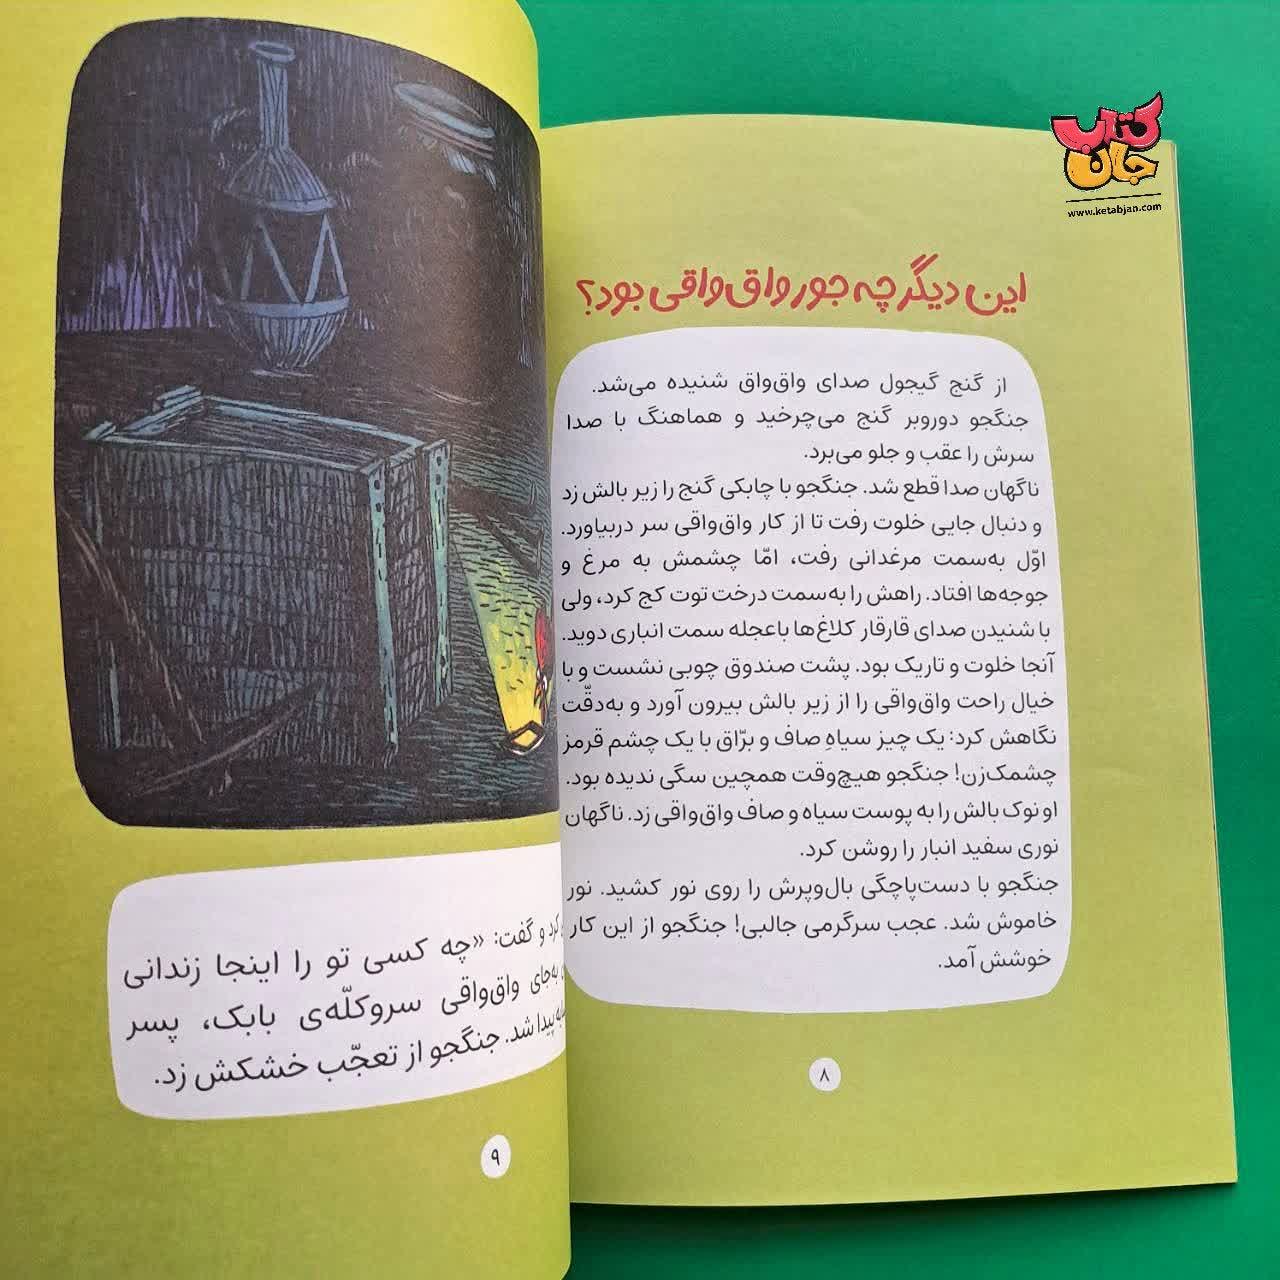 کتاب
جان
www.ketabjan.com
این دیگر چه جور واق‌واقی بود؟
از گنج گیجول صدای واق‌واق شنیده می‌شد.
جنگجو دوروبر گنج می‌چرخید و هماهنگ با صدا
سرش را عقب و جلو می‌برد.
ناگهان صدا قطع شد. جنگجو با چابکی گنج را زیر بالش زد
و دنبال جایی خلوت رفت تا از کار واق‌واقی سر دربیاورد.
اوّل به‌سمت مرغدانی رفت، امّا چشمش به مرغ و
جوجه‌ها افتاد. راهش را به‌سمت درخت توت کج کرد، ولی
با شنیدن صدای قارقار کلاغ‌ها باعجله سمت انباری دوید.
آنجا خلوت و تاریک بود. پشت صندوق چوبی نشست و با
خیال راحت واق‌واقی را از زیر بالش بیرون آورد و به‌دقّت
نگاهش کرد: یک چیز سیاهِ صاف و برّاق با یک چشم قرمز
چشمک‌زن! جنگجو هیچ‌وقت همچین سگی ندیده بود.
او نوک بالش را به پوست سیاه و صاف واق‌واقی زد. ناگهان
نوری سفید انبار را روشن کرد.
جنگجو با دست‌پاچگی بال‌وپرش را روی نور کشید. نور
خاموش شد. عجب سرگرمی جالبی! جنگجو از این کار
خوشش آمد.
۸
کرد و گفت: «چه کسی تو را اینجا زندانی
به‌جای واق‌واقی سروکلّه‌ی بابک، پسر
پیدا شد. جنگجو از تعجّب خشکش زد.
۹